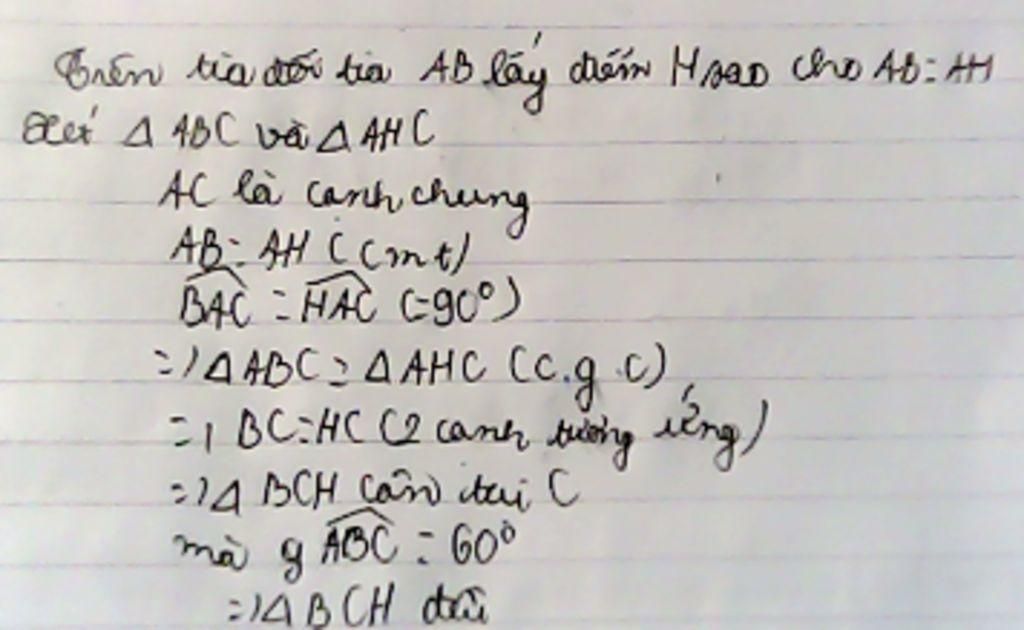 Trên tia đối tia AB lấy điểm H sao cho AB = AH
Xét △ ABC và △ AHC
AC là cạnh chung
AB = AH (cmt)
\widehat{BAC} = \widehat{HAC} (=90°)
=> △ ABC = △ AHC (c.g.c)
=> BC = HC (2 cạnh tương ứng)
=> △ BCH cân tại C
mà g \widehat{ABC} = 60°
=> △ BCH đều